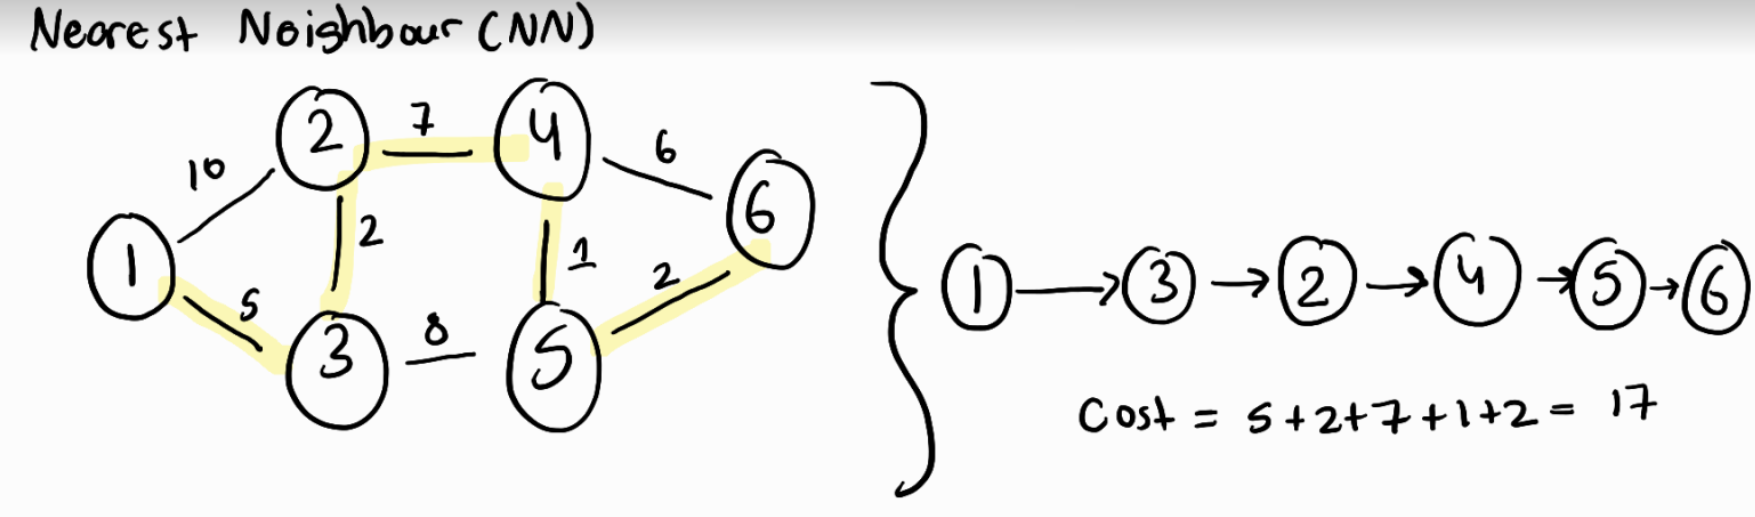 Nearest Neighbour (NN)
10
7
6
1
2
4
6
2
1
2
5
8
3
5
1 → 3 → 2 → 4 → 5 → 6
Cost = 5+2+7+1+2 = 17